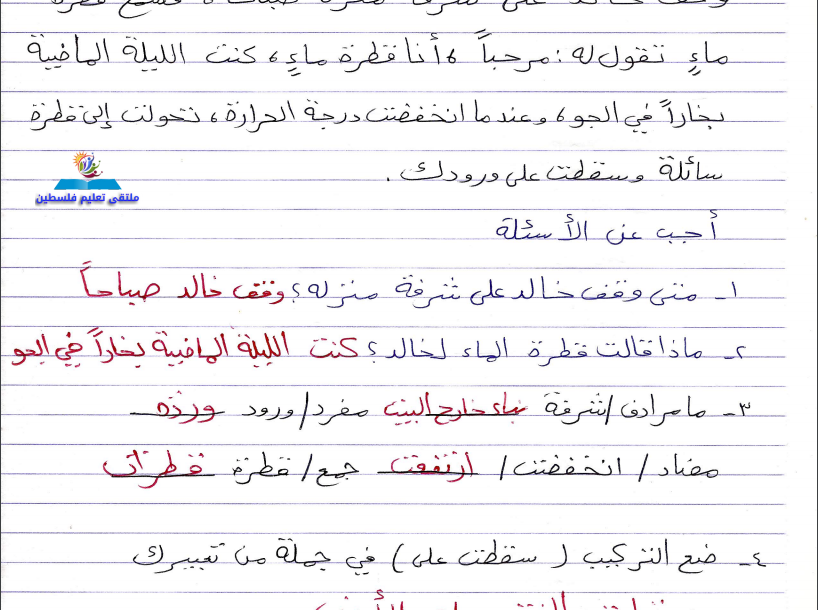 وقف خالد على شرفة منزله صباحاً، فسمع قطرة
ماءٍ تقول له: مرحباً، أنا قطرة ماءٍ، كنت الليلة الماضية
بخاراً في الجو، وعندما انخفضت درجة الحرارة، تحولت إلى قطرة
سائلة وسقطت على ورودك.
ملتقى تعليم فلسطين
أجب عن الأسئلة
١- متى وقف خالد على شرفة منزله؟ وقف خالد صباحاً
٢- ماذا قالت قطرة الماء لخالد؟ كنت الليلة الماضية بخاراً في الجو
٣- ما مرادف/ شرفة بناء خارج البيت مفرد/ ورود وردة
مضاد/ انخفضت/ ارتفعت جمع/ قطرة قطرات
٤- ضع التركيب ( سقطت على ) في جملة من تعبيرك